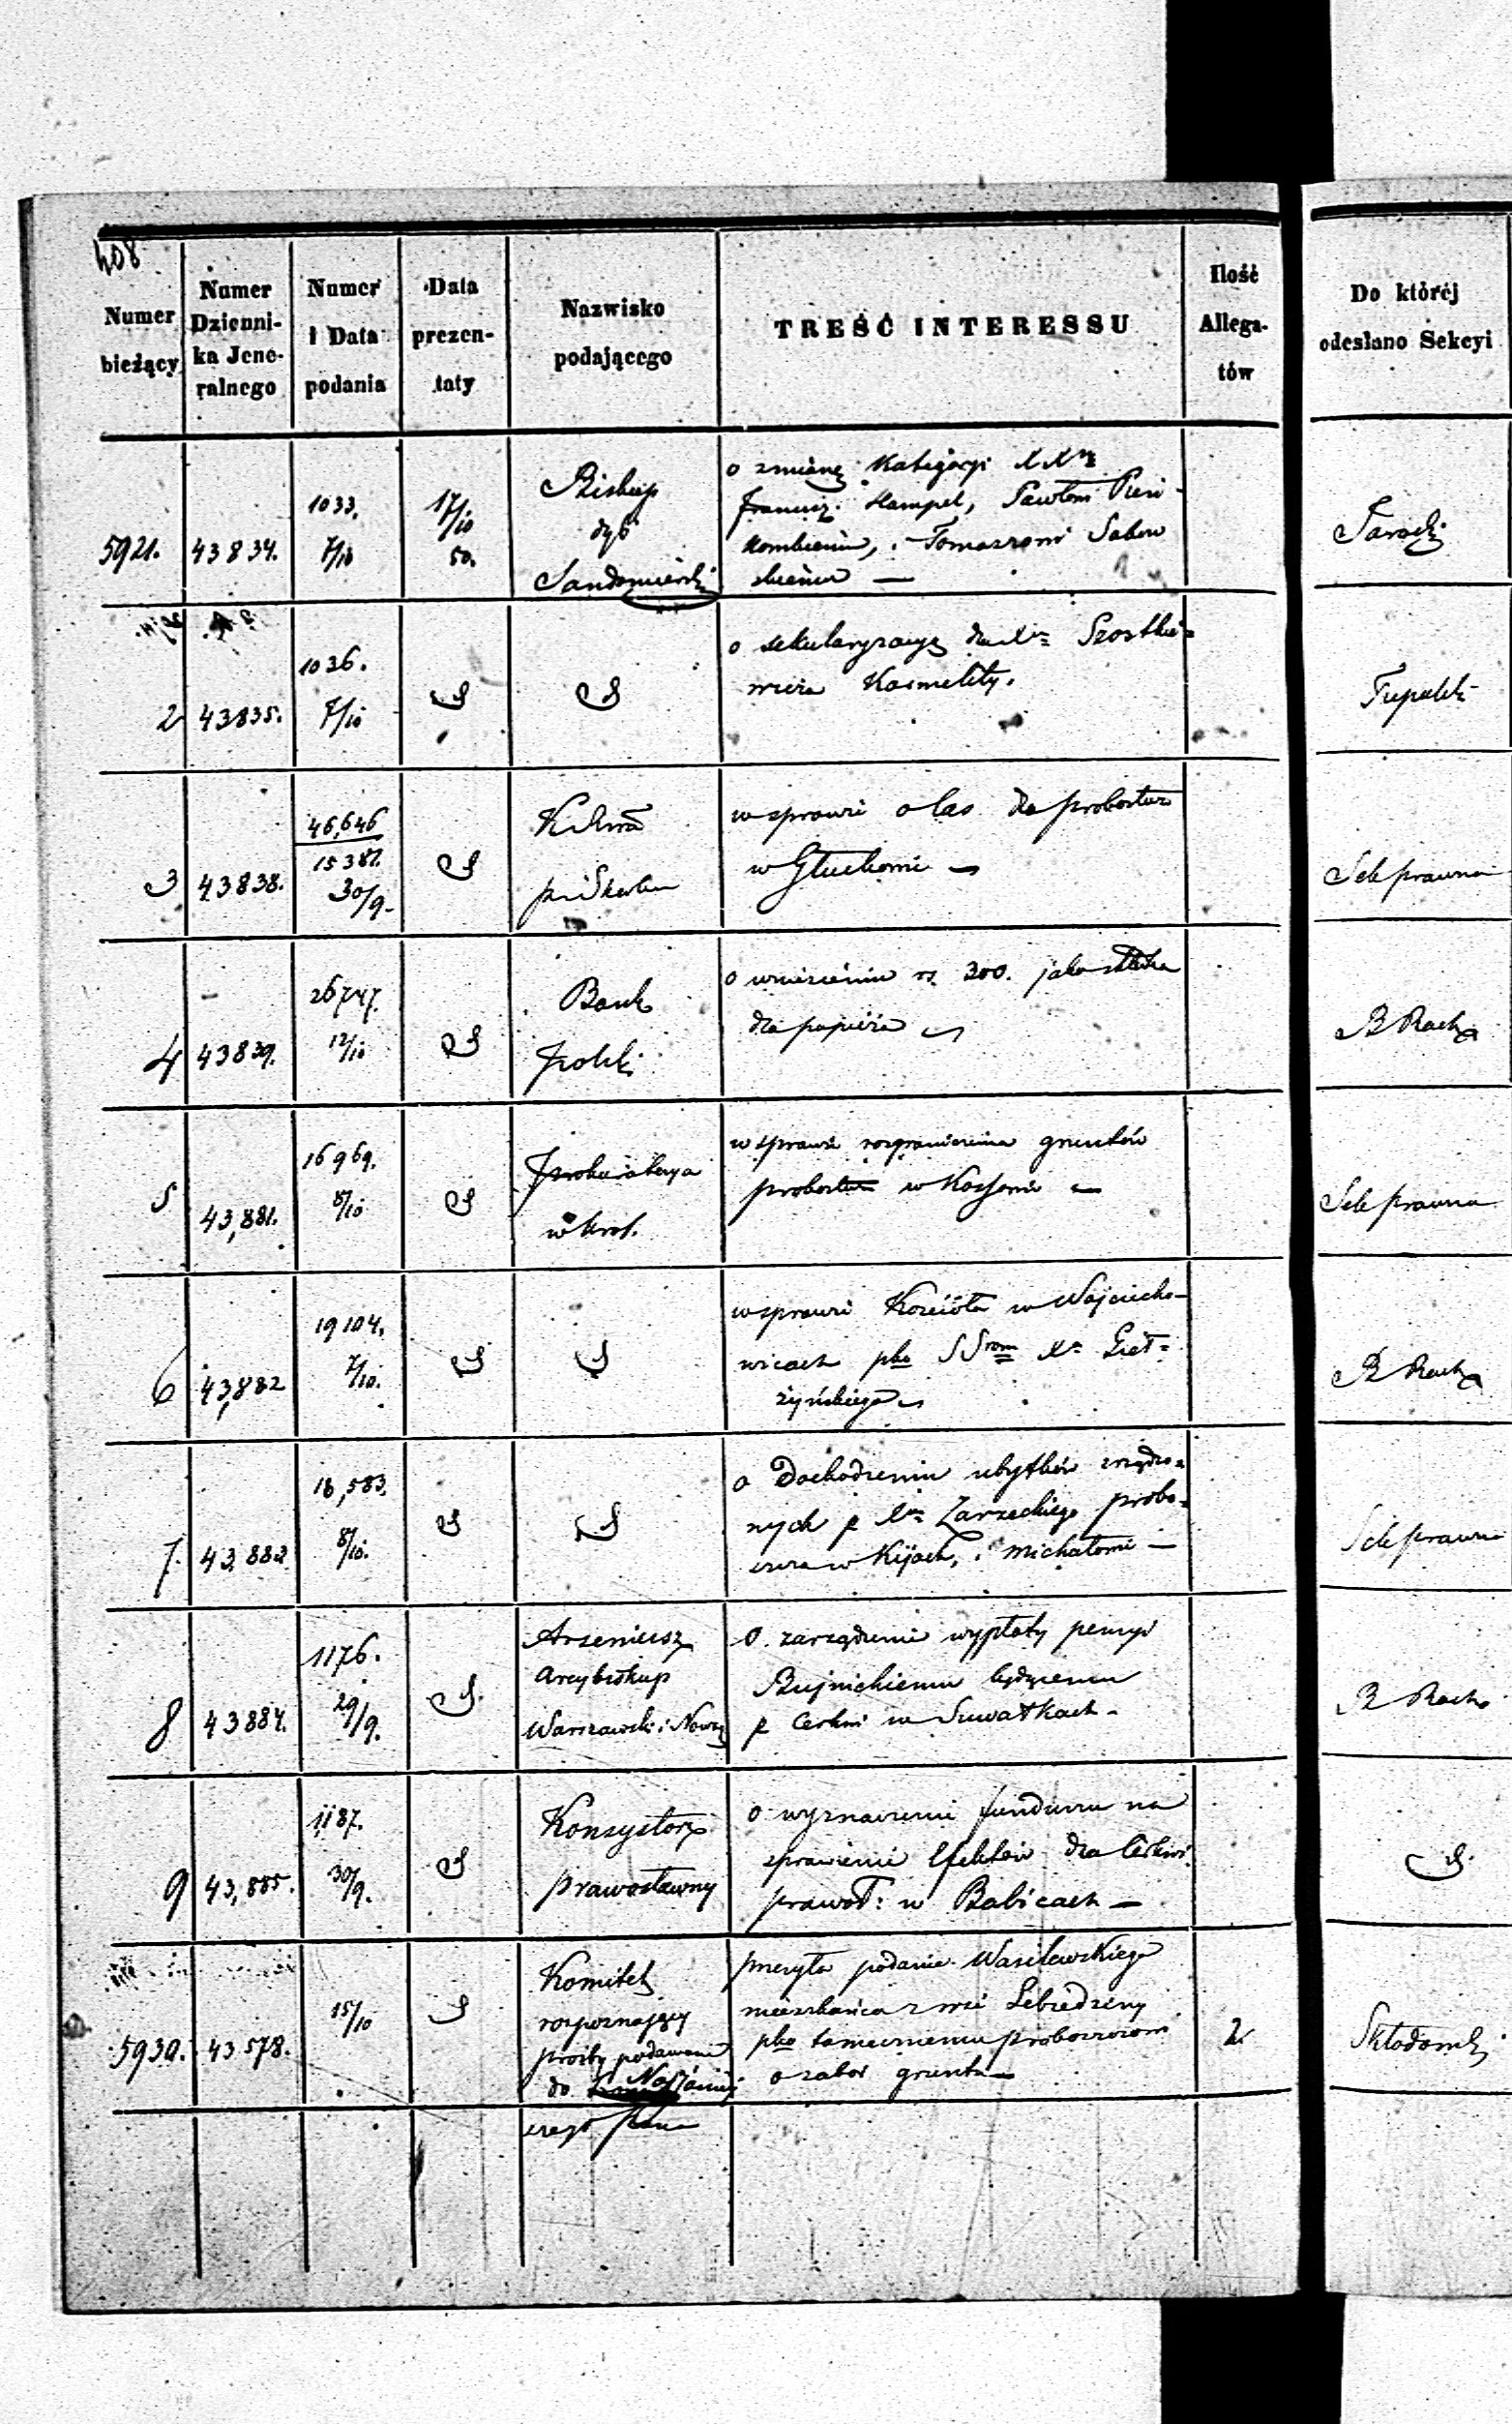 408
Numer
bieżący
Numer
Dzienni-
ka Jene-
ralnego
Numer
i Data
podania
Data
prezen-
taty
Nazwisko
podającego
TREŚĆ INTERESSU
Ilość
Allega-
tów
Do któréj
odesłano Sekcyi
5921. 43834. 1033. 7/10 17/10 50.
Biskup
dyc
Sandomierski
o zmianę Kategoryi XX
Francisz. Hampel, Pawłowi
i Tomaszowi
2 43835. 1036. 7/10
o sekularyzacyę dla Xa Szostkie=
wicza Karmelity.
3 43838. 46,646 15387. 30/9.
w sprawie o las do probostwa
w Głuchowie
Sek prawna
4 43839. 26747. 12/10
Bank
Polski
o wniesieniu rs. 300. jako
dla papieża
B Rach
5 43,881. 16969. 8/10
Prokuratorya
w Król.
w sprawie rozgraniczenia gruntów
probostwa w
Sek prawna
6 43,882 19104. 7/10.
w sprawie Kościoła w Wojciecho-
wicach pko SSrom Xa Gieł=
żyńskiego
B Rach
7. 43,883 18,583. 8/10.
o dochodzeniu ubytków zrządzo=
nych p Xa Zarzeckiego probo=
szcza w Kijach, i Michałowie
Sek prawna
8 43884. 1176. 29/9.
Arseniusz
Arcybiskup
Warszawski i Nowog
O zarządzenie wypłaty pensyi
Bujnickiemu będącemu
p Cerkwi w Suwałkach
B Rach
9 43,885. 1187. 30/9.
Konsystorz
prawosławny
o wyznaczenie funduszu na
sprawienie efektów dla Cerkwi
prawosł: w Babicach
5930. 43578. 15/10
Komitet
rozpoznający
prośby podawane
do Najjaśniej
szego Pana
przesyła podanie Wasilewskiego
mieszkańca z wsi Lebiedziny
pko tamecznemu proboszczowi
o zabór gruntu
2